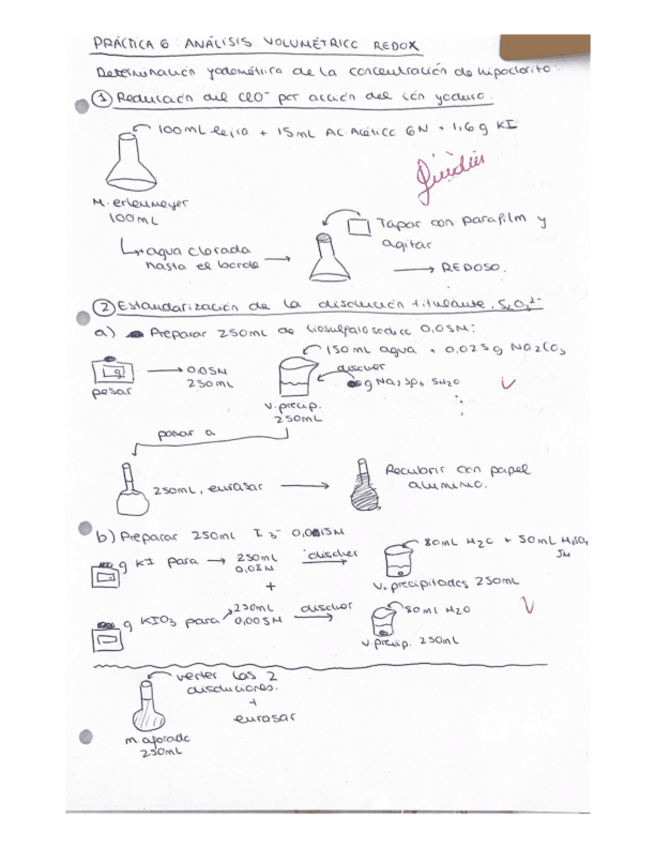 PRÁCTICA 6: ANÁLISIS VOLUMÉTRICO REDOX
Determinación yodométrica de la concentración de hipoclorito:
① Reducción del ClO⁻ por acción del ión yoduro.
100mL lejía + 15mL Ac. Acético 6N + 1,6g KI
M. erlenmeyer
100mL
Tapar con parafilm y
agitar
agua clorada
hasta el borde
REPOSO.
② Estandarización de la disolución titulante, S₂O₃²⁻
a) Preparar 250mL de tiosulfato sódico 0,05M:
150 mL agua + 0,025g Na2CO3
disolver
0,05M
250mL
g Na2
5H2O
pesar
V. precip.
250mL
pasar a
250mL, enrasar
Recubrir con papel
aluminio.
b) Preparar 250mL I3⁻ 0,0015M
80mL H2O + 50mL H2SO4
g KI para
250mL
0,02M
disolver
V. precipitados 250mL
+
g KIO3 para
250mL
0,005M
disolver
80ml H2O
V. precip. 250mL
verter las 2
disoluciones.
+
enrasar
m. aforado
250mL